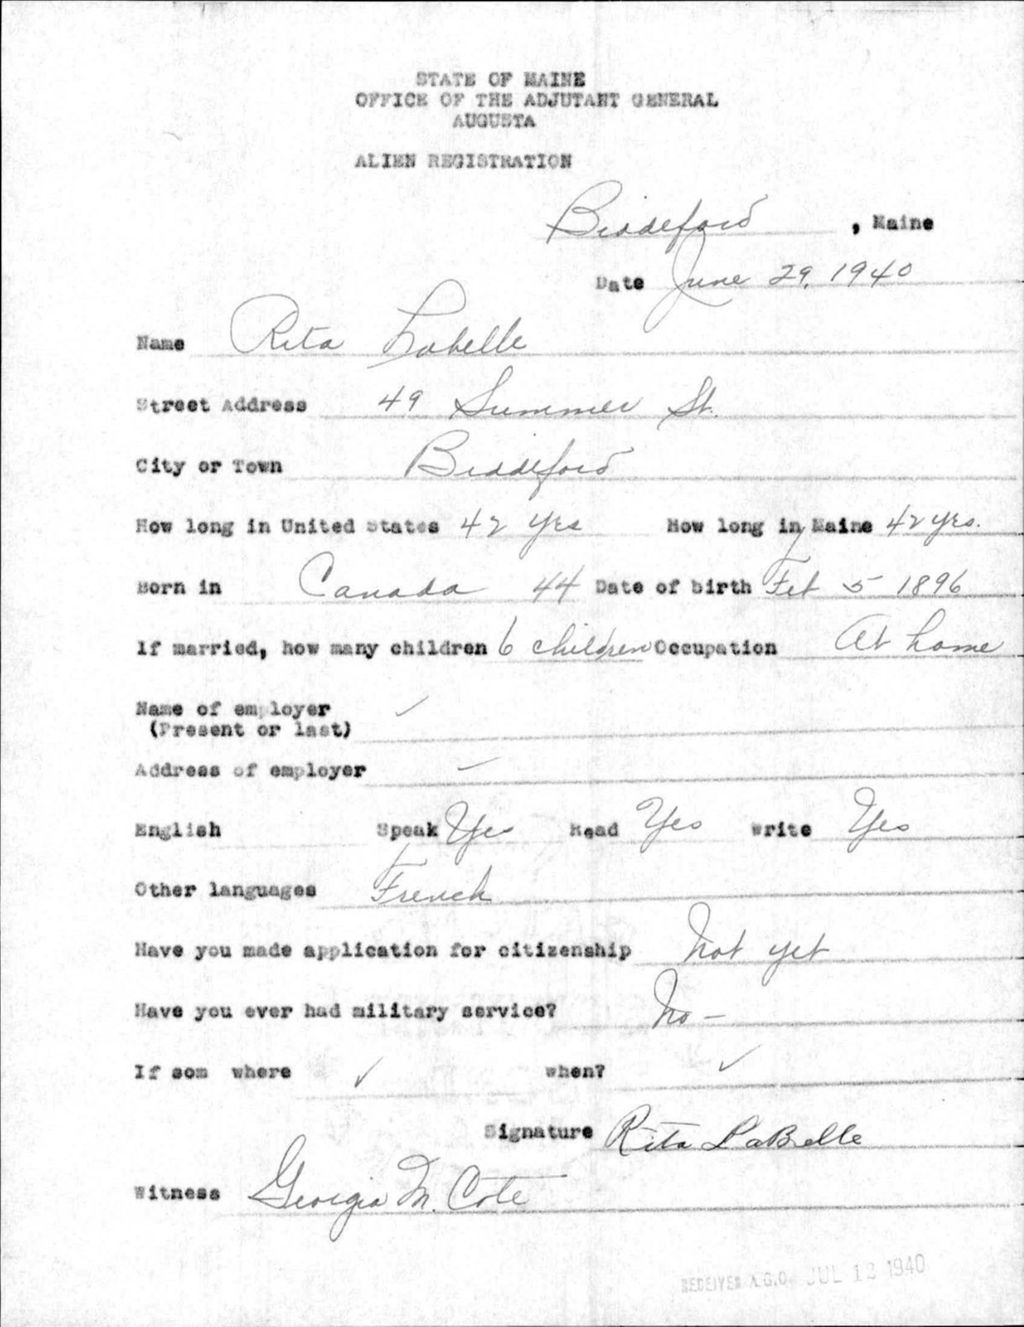 STATE OF MAINE
OFFICE OF THE ADJUTANT GENERAL
AUGUSTA
ALIEN REGISTRATION
Biddeford, Maine
Date June 29, 1940
Name Rita Labelle
Street Address 49 Summer St.
City or Town Biddeford
How long in United States 42 yrs How long in Maine 42 yrs.
Born in Canada 44 Date of birth Feb 5 1896
If married, how many children 6 children Occupation At home
Name of employer ✓
(Present or last)
Address of employer –
English Speak Yes Read Yes Write Yes
Other languages French
Have you made application for citizenship Not yet
Have you ever had military service? No –
If som where ✓ when? ✓
Signature Rita LaBelle
Witness Georgia M. Cote
RECEIVED A.G.O. JUL 12 1940